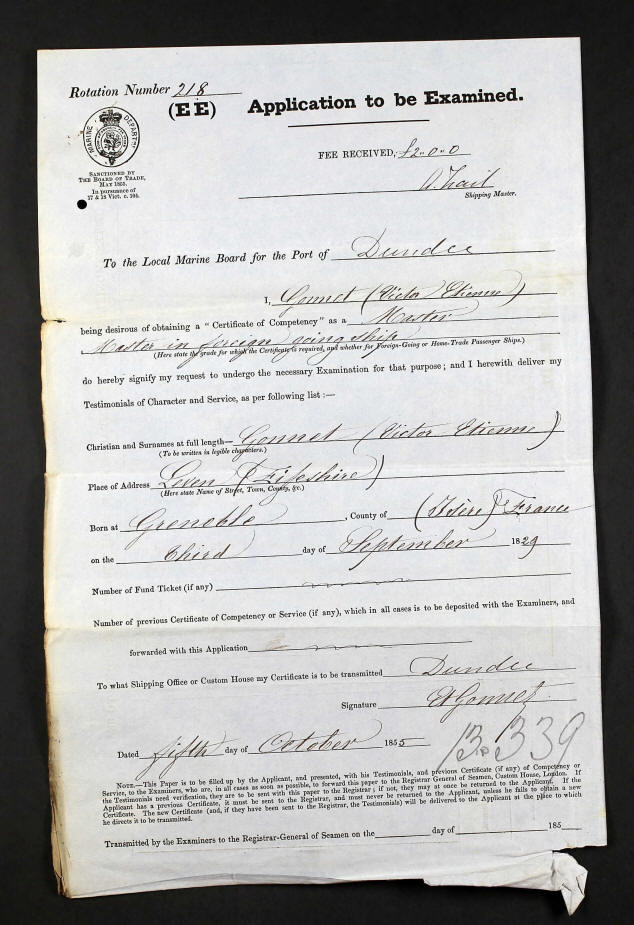 Rotation Number 218
(EE) Application to be Examined.
MARINE DEPARTMT
SANCTIONED BY
THE BOARD OF TRADE,
MAY 1855.
In pursuance of
17 & 18 Vict. c. 104.
FEE RECEIVED, £2..0..0
Shipping Master.
To the Local Marine Board for the Port of Dundee
I, Gonnet (Victor Etienne)
being desirous of obtaining a "Certificate of Competency" as a Master
Master in foreign going ship
(Here state the grade for which the Certificate is required, and whether for Foreign-Going or Home-Trade Passenger Ships.)
do hereby signify my request to undergo the necessary Examination for that purpose; and I herewith deliver my
Testimonials of Character and Service, as per following list:—
Christian and Surnames at full length— Gonnet (Victor Etienne)
(To be written in legible characters.)
Place of Address Leven (Fifeshire)
(Here state Name of Street, Town, County, &c.)
Born at Grenoble, County of (Isère) France
on the Third day of September 1829
Number of Fund Ticket (if any)
Number of previous Certificate of Competency or Service (if any), which in all cases is to be deposited with the Examiners, and
forwarded with this Application
To what Shipping Office or Custom House my Certificate is to be transmitted Dundee
Signature Gonnet
Dated fifth day of October 1855
NOTE.—This Paper is to be filled up by the Applicant, and presented, with his Testimonials, and previous Certificate (if any) of Competency or
Service, to the Examiners, who are, in all cases as soon as possible, to forward this paper to the Registrar General of Seamen, Custom House, London. If
the Testimonials need verification, they are to be sent with this Paper to the Registrar; if not, they may at once be returned to the Applicant. If the
Applicant has a previous Certificate, it must be sent to the Registrar, and must never be returned to the Applicant, unless he fails to obtain a new
Certificate. The new Certificate (and, if they have been sent to the Registrar, the Testimonials) will be delivered to the Applicant at the place to which
he directs it to be transmitted.
Transmitted by the Examiners to the Registrar-General of Seamen on the day of 185